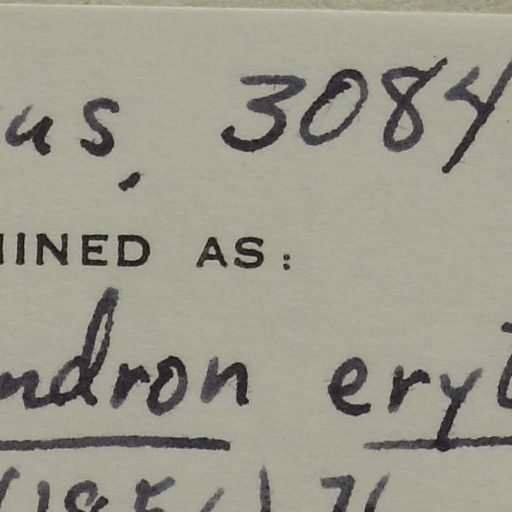 us, 3084
MINED AS:
ndron eryt
(185